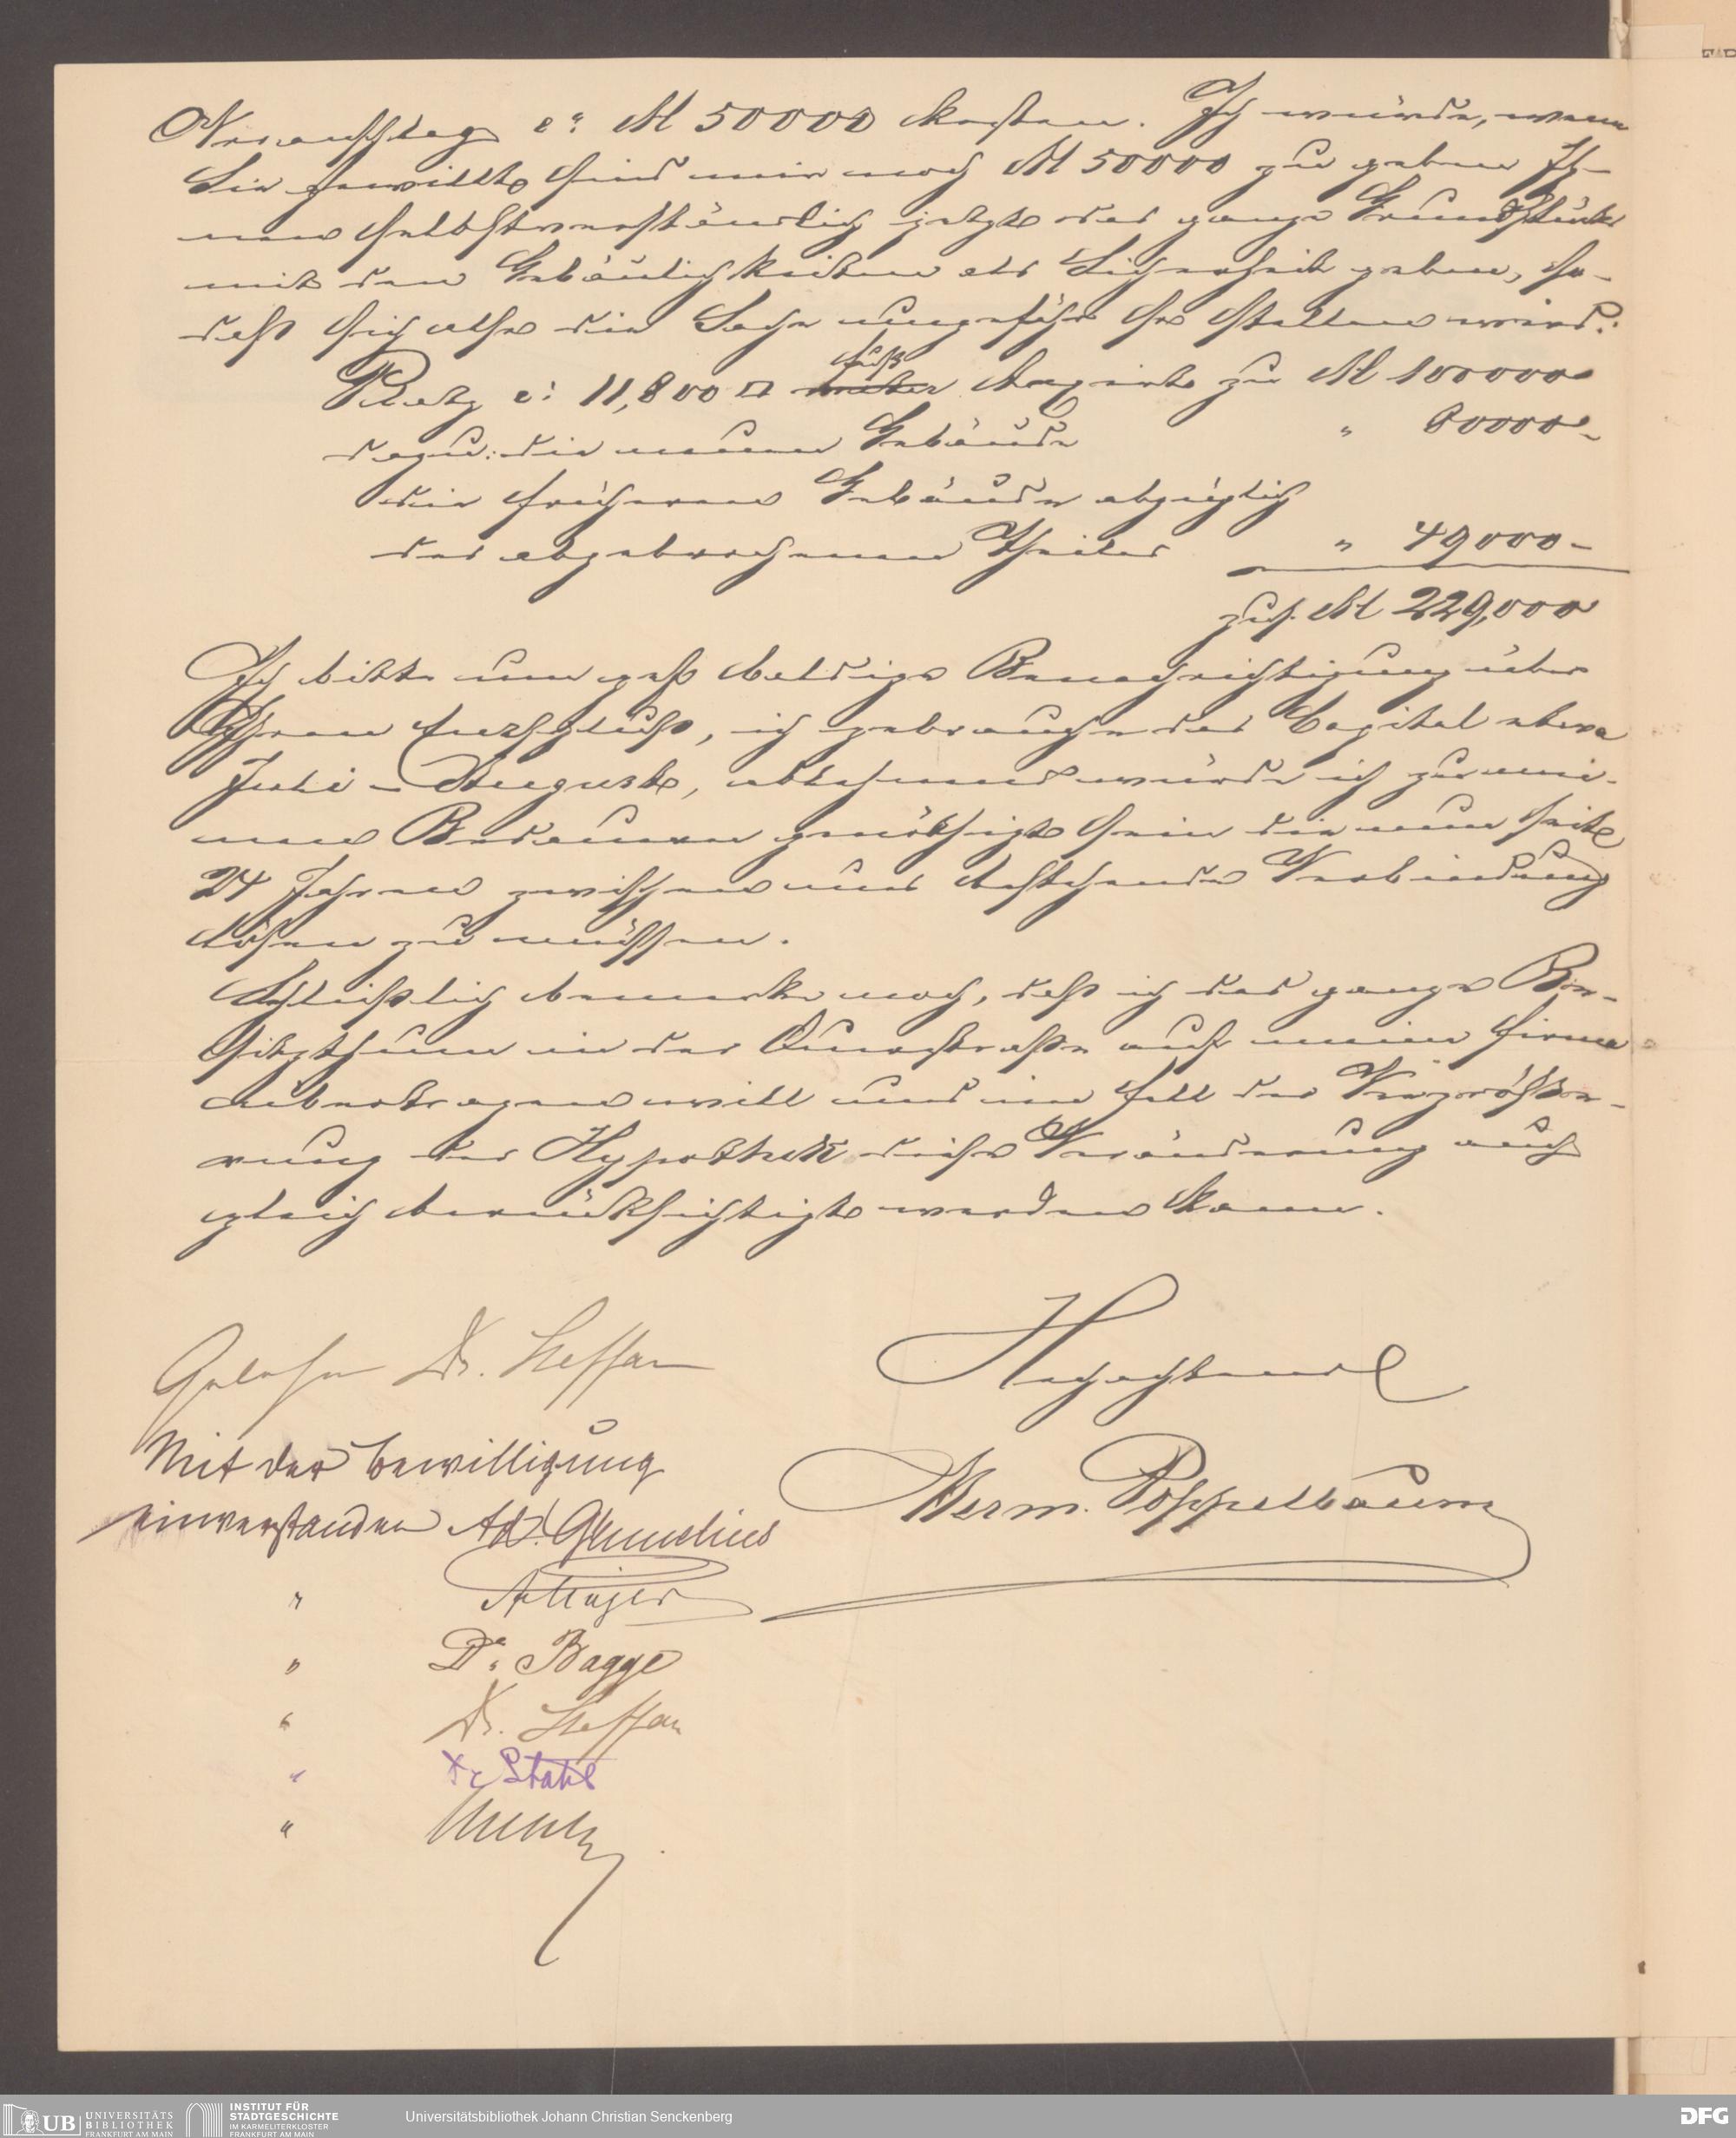 Voranschlag c: M 50000 kosten. Ich würde, wenn
Sie gewillt sind mir noch M 50000 zu geben Ih-
nen selbstverständlich jetzt das ganze Grundstück
mit den Gebäulichkeiten als Sicherheit geben, so-
daß sich also die Sache ungefähr so stellen wird:
Platz c: 11,800 □ fuß taxirt zu M 100000
dazu: die neuen Gebäude " 80000-
die früheren Gebäude abzüglich
des abgebrochenen Theiles " 49000-
zus. M 229,000
Ich bitte um gefl baldige Benachrichtigung über
Ihren Entschluß, ich gebrauche das Capital etwa
Juli - August, ablehnend würde ich zu mei-
nem Bedauern genöthigt sein die nun seit
24 Jahren zwischen uns bestehende Verbindung
lösen zu müssen.
Schließlich bemerke noch, daß ich das ganze Be-
sitzthum in der auf meine Firma
übertragen will und im Fall der Vergröße-
rung der Hypothek diese Veränderung auch
gleich berücksichtigt werden kann.
Hochachtend
Herm. Poppelbaum
Gelesen Dr. Steffan
Mit der Bewilligung
einverstanden Ad. Gmelius
"
" Dr. Bagge
" Dr. Steffan
" Dr Stahl
"
UB UNIVERSITÄTS
BIBLIOTHEK
FRANKFURT AM MAIN
INSTITUT FÜR
STADTGESCHICHTE
IM KARMELITERKLOSTER
FRANKFURT AM MAIN
Universitätsbibliothek Johann Christian Senckenberg
DFG